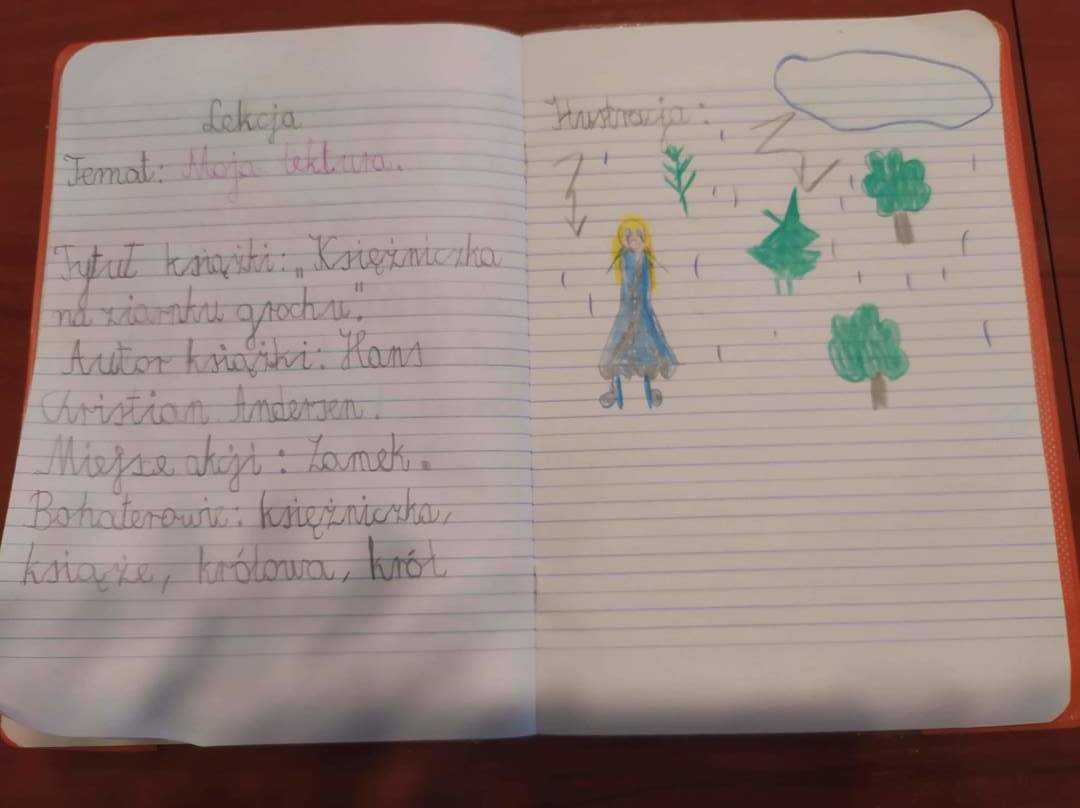 Lekcja
Temat: Moja lektura.
Tytuł książki: „Księżniczka
na ziarnku grochu".
Autor książki: Hans
Christian Andersen.
Miejsce akcji: Zamek.
Bohaterowie: księżniczka,
książe, królowa, król
Ilustracja: